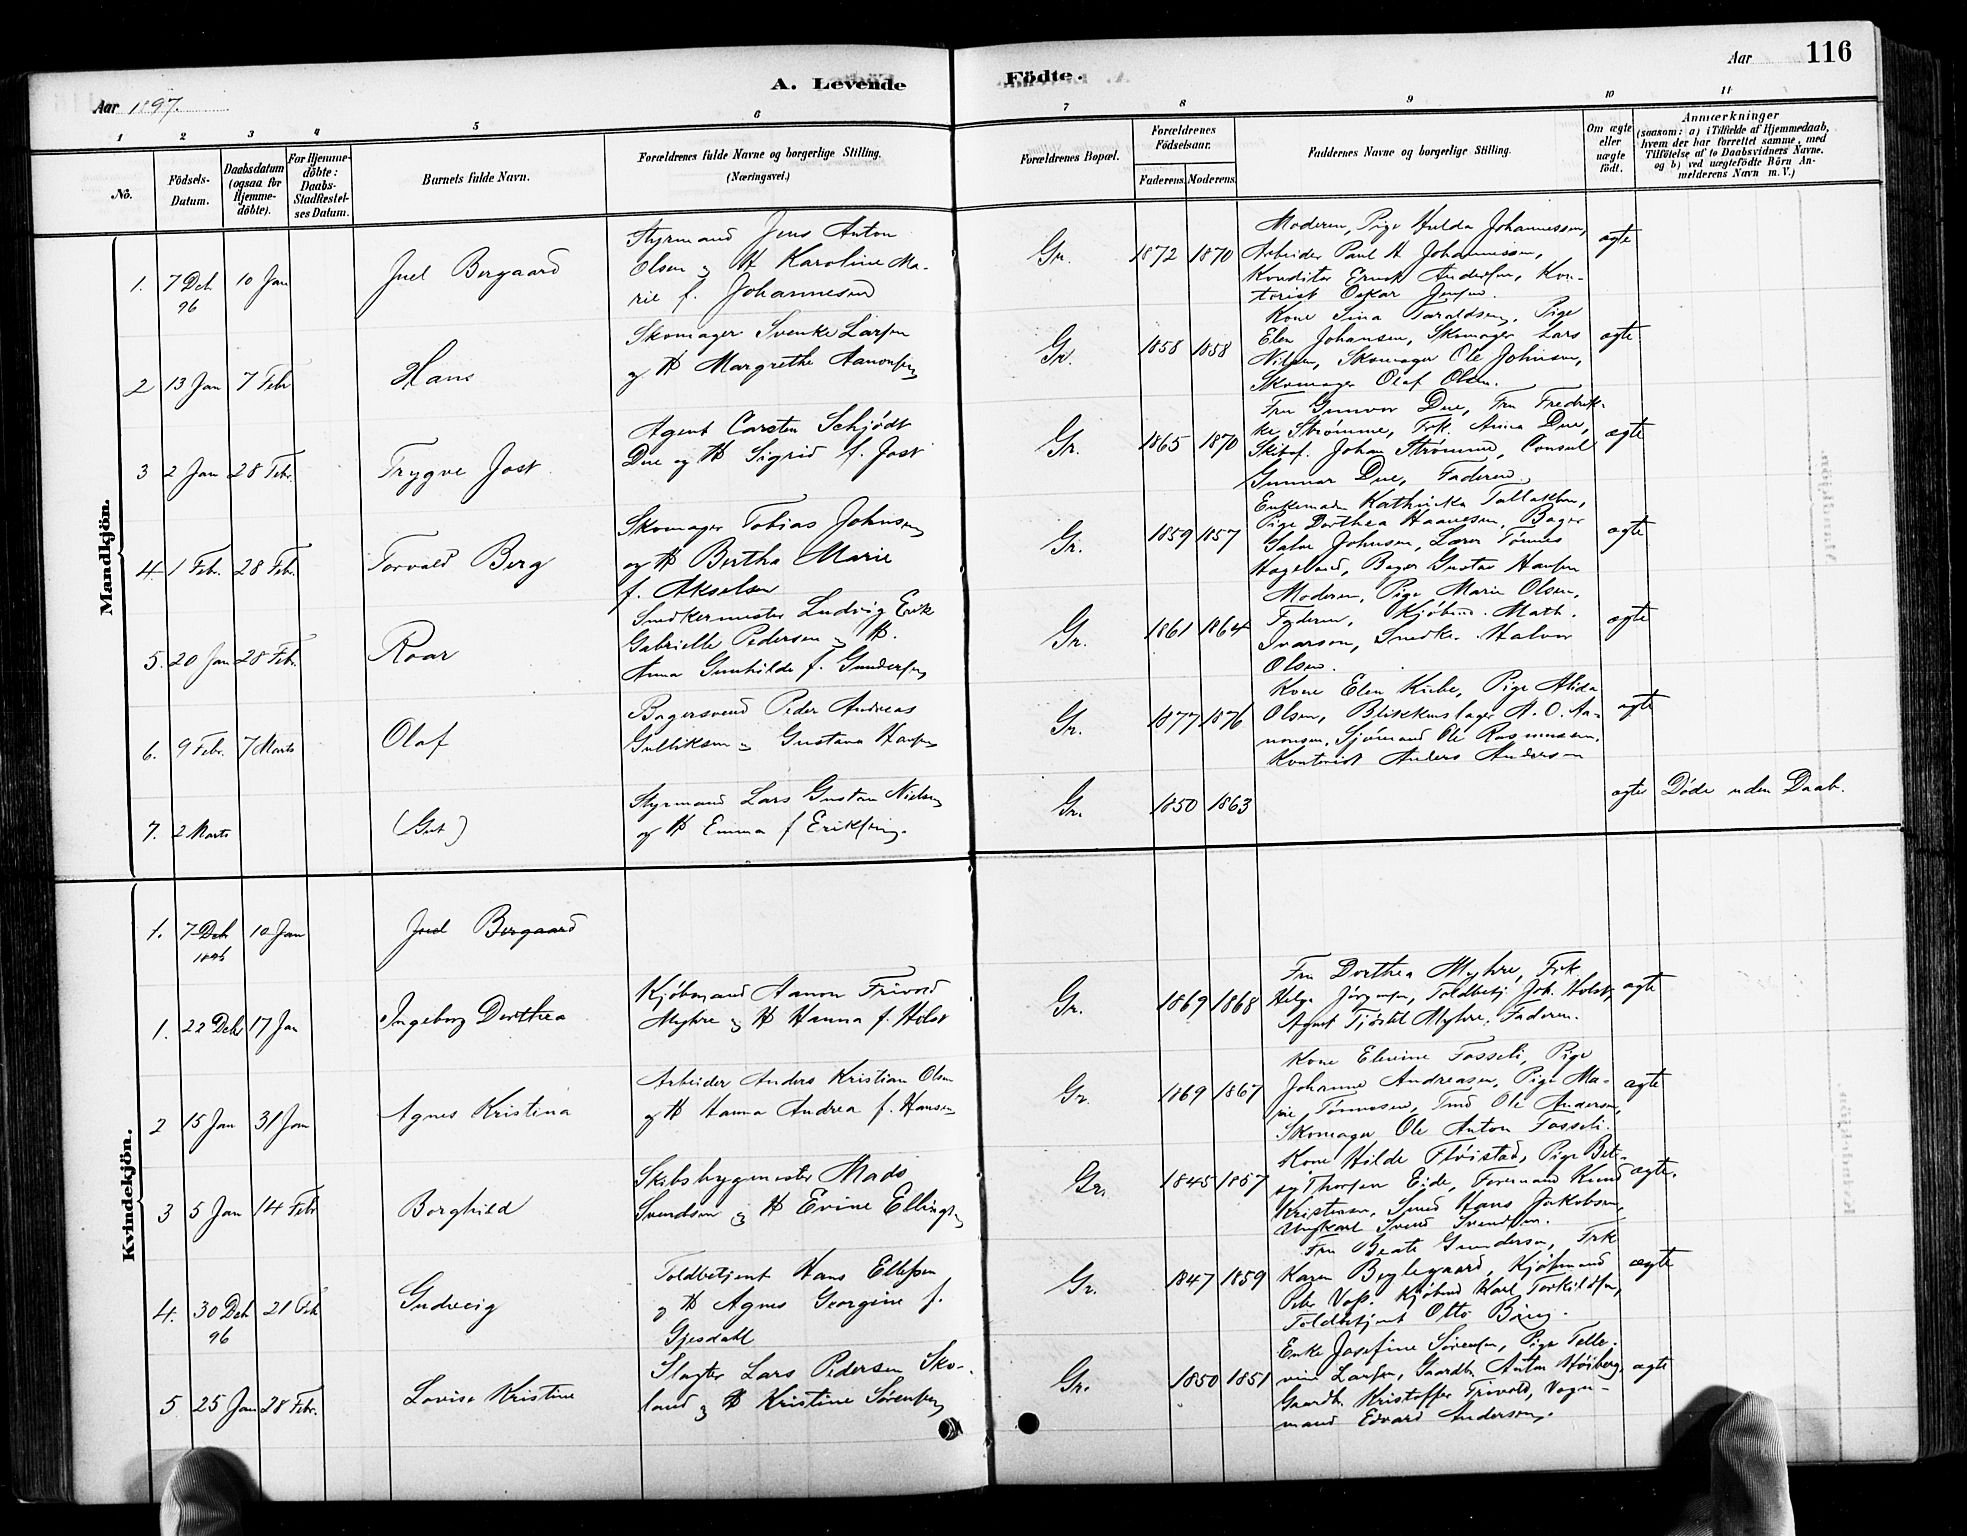 A. Levende
Födte.
Aar
116
Aar 1897.
1 2 3 4 5 6 7 8 9 10 11
No.
Födsels-Datum.
Daabsdatum (ogsaa for Hjemmedöbte).
For Hjemmedöbte: Daabs-Stadfæstelses Datum.
Barnets fulde Navn.
Forældrenes fulde Navne og borgerlige Stilling.
(Næringsvei.)
Forældrenes Bopæl.
Forældrenes Födselsaar.
Faderens. Moderens.
Faddernes Navne og borgerlige Stilling.
Om ægte eller uægte födt.
Anmærkninger
(saasom: a) i Tilfælde af Hjemmedaab, hvem der har forrettet samme, med Tilföielse af to Daabsvidners Navne. og b) ved uægtefödte Börn Anmelderens Navn m. V.)
Mandkjön.
1. 7 Deb 96 10 Jan
Juel Bergaard
Styrmand Jens Anton
Olsen og H Karoline Ma-
rie f. Johannesen
Gr. 1872 1870
Moderen, Pige Hulda Johannessen,
Arbeider Paul A Johannissen,
Konditor Ernst Andersen, Kon-
torist Oskar Jensen.
ægte
2 13 Jan 7 Febr
Hans
Skomager Svenke Larsen
og H Margrethe Aanonsen
Gr. 1858 1858
Kone Sina Taraldsen, Pige
Elen Johansen, Skomager Lars
Nilsen, Skomager Ole Johnsen,
Skomager Olaf Olsen.
ægte
3 2 Jan 28 Febr.
Trygve Jost
Agent Carsten Schjödt
Due og H Sigrid f. Jost
Gr. 1865 1870
Fru Gunvor Due, Fru Fredrik-
ke Strømme, Frk. Anna Due,
Skibsf. Johan Strømme, Consul
Gunnar Due, Faderen
ægte
4. 1 Febr. 28 Feb.
Torvald Berg
Skomager Tobias Johnsen
og H Bertha Marie
f. Akselsen
Gr. 1859 1857
Enkemadm Kathinka Tallaksen,
Pige Dorthea Haanesen, Bager
Salve Johnsen, Lærer Tønnes
Hageland, Bager Gustav Hansen
ægte
5. 20 Jan 28 Febr.
Roar
Snedkermester Ludvig Erik
Gabrielle Pedersen og H.
Anna Gunhilde f. Gundersen
Gr. 1861 1864
Moderen, Pige Marie Olsen,
Kjøbmd. Math.
Ivarson, Snedke. Halvor
Olsen.
ægte
6. 9 Febr. 7 Marts
Olaf
Bagersvend Peder Andreas
Gulliksen og Gustava Hansen
Gr. 1877 1876
Kone Elen Kiebe, Pige Alida
Olsen, Blikkenslager A. O. Aa-
nonsen, Sjømand Ole Rasmussen,
Kontorist Anders Anderson
ægte
7. 2 Marts
(Gut)
Styrmand Lars Gustav Nielsen
og H Emma f Eriksen.
Gr. 1850 1863
ægte Døde uden Daab.
Kvindekjön.
1. 7 Deb 1896 10 Jan
Juel Bergaard
1. 22 Deb 17 Jan
Ingeborg Dorthea
Kjöbmand Aanon Frivold
Myhre og H Hanna f. Holst
Gr. 1869 1868
Fru Dorthea Myhre, Frk.
Helga Jörgensen, Toldbetj Joh. Holst,
Agent Tjöstel Myhre, Faderen.
ægte
2 15 Jan 31 Jan
Agnes Kristina
Arbeider Anders Kristian Olsen
og H Hanna Andrea f. Hansen
Gr. 1869 1867
Kone Elevine Fosseli, Pige
Johanne Andreasen, Pige Ma-
rie Tønnesen, Tmd Ole Andersen,
Skomager Ole Anton Fosseli.
ægte
3 5 Jan 14 Febr
Borghild
Skibsbygmester Mads
Svendsen og H Evine Ellingsen
Gr. 1845 1857
Kone Hilde Fløistad, Pige Bet-
sy Thorsen Eide, Formand Knud
Kristensen, Smed Hans Jakobsen,
Ungkarl Svend Svendsen.
ægte.
4. 30 Deb 96 21 Feb
Gudveig
Toldbetjent Hans Ellefsen
og H Agnes Georgine f.
Gjesdahl
Gr. 1847 1859
Fru Beate Gundersen, Frk
Karen Beylegaard, Kjøbmand
Peter Voss, Kjøbmd Karl Torkildsen,
Toldbetjent Otto Bing.
ægte
5 25 Jan 28 Febr.
Lovise Kristine
Slagter Lars Pedersen Sko-
land og H Kristine Sørensen
Gr. 1850 1851
Enke Josefine Sørensen, Pige Telle-
vine Larsen, Gaardb. Anton Høiberg
Gaardb. Kristoffer Frivold, Vogn-
mand Edvard Andersen.
ægte